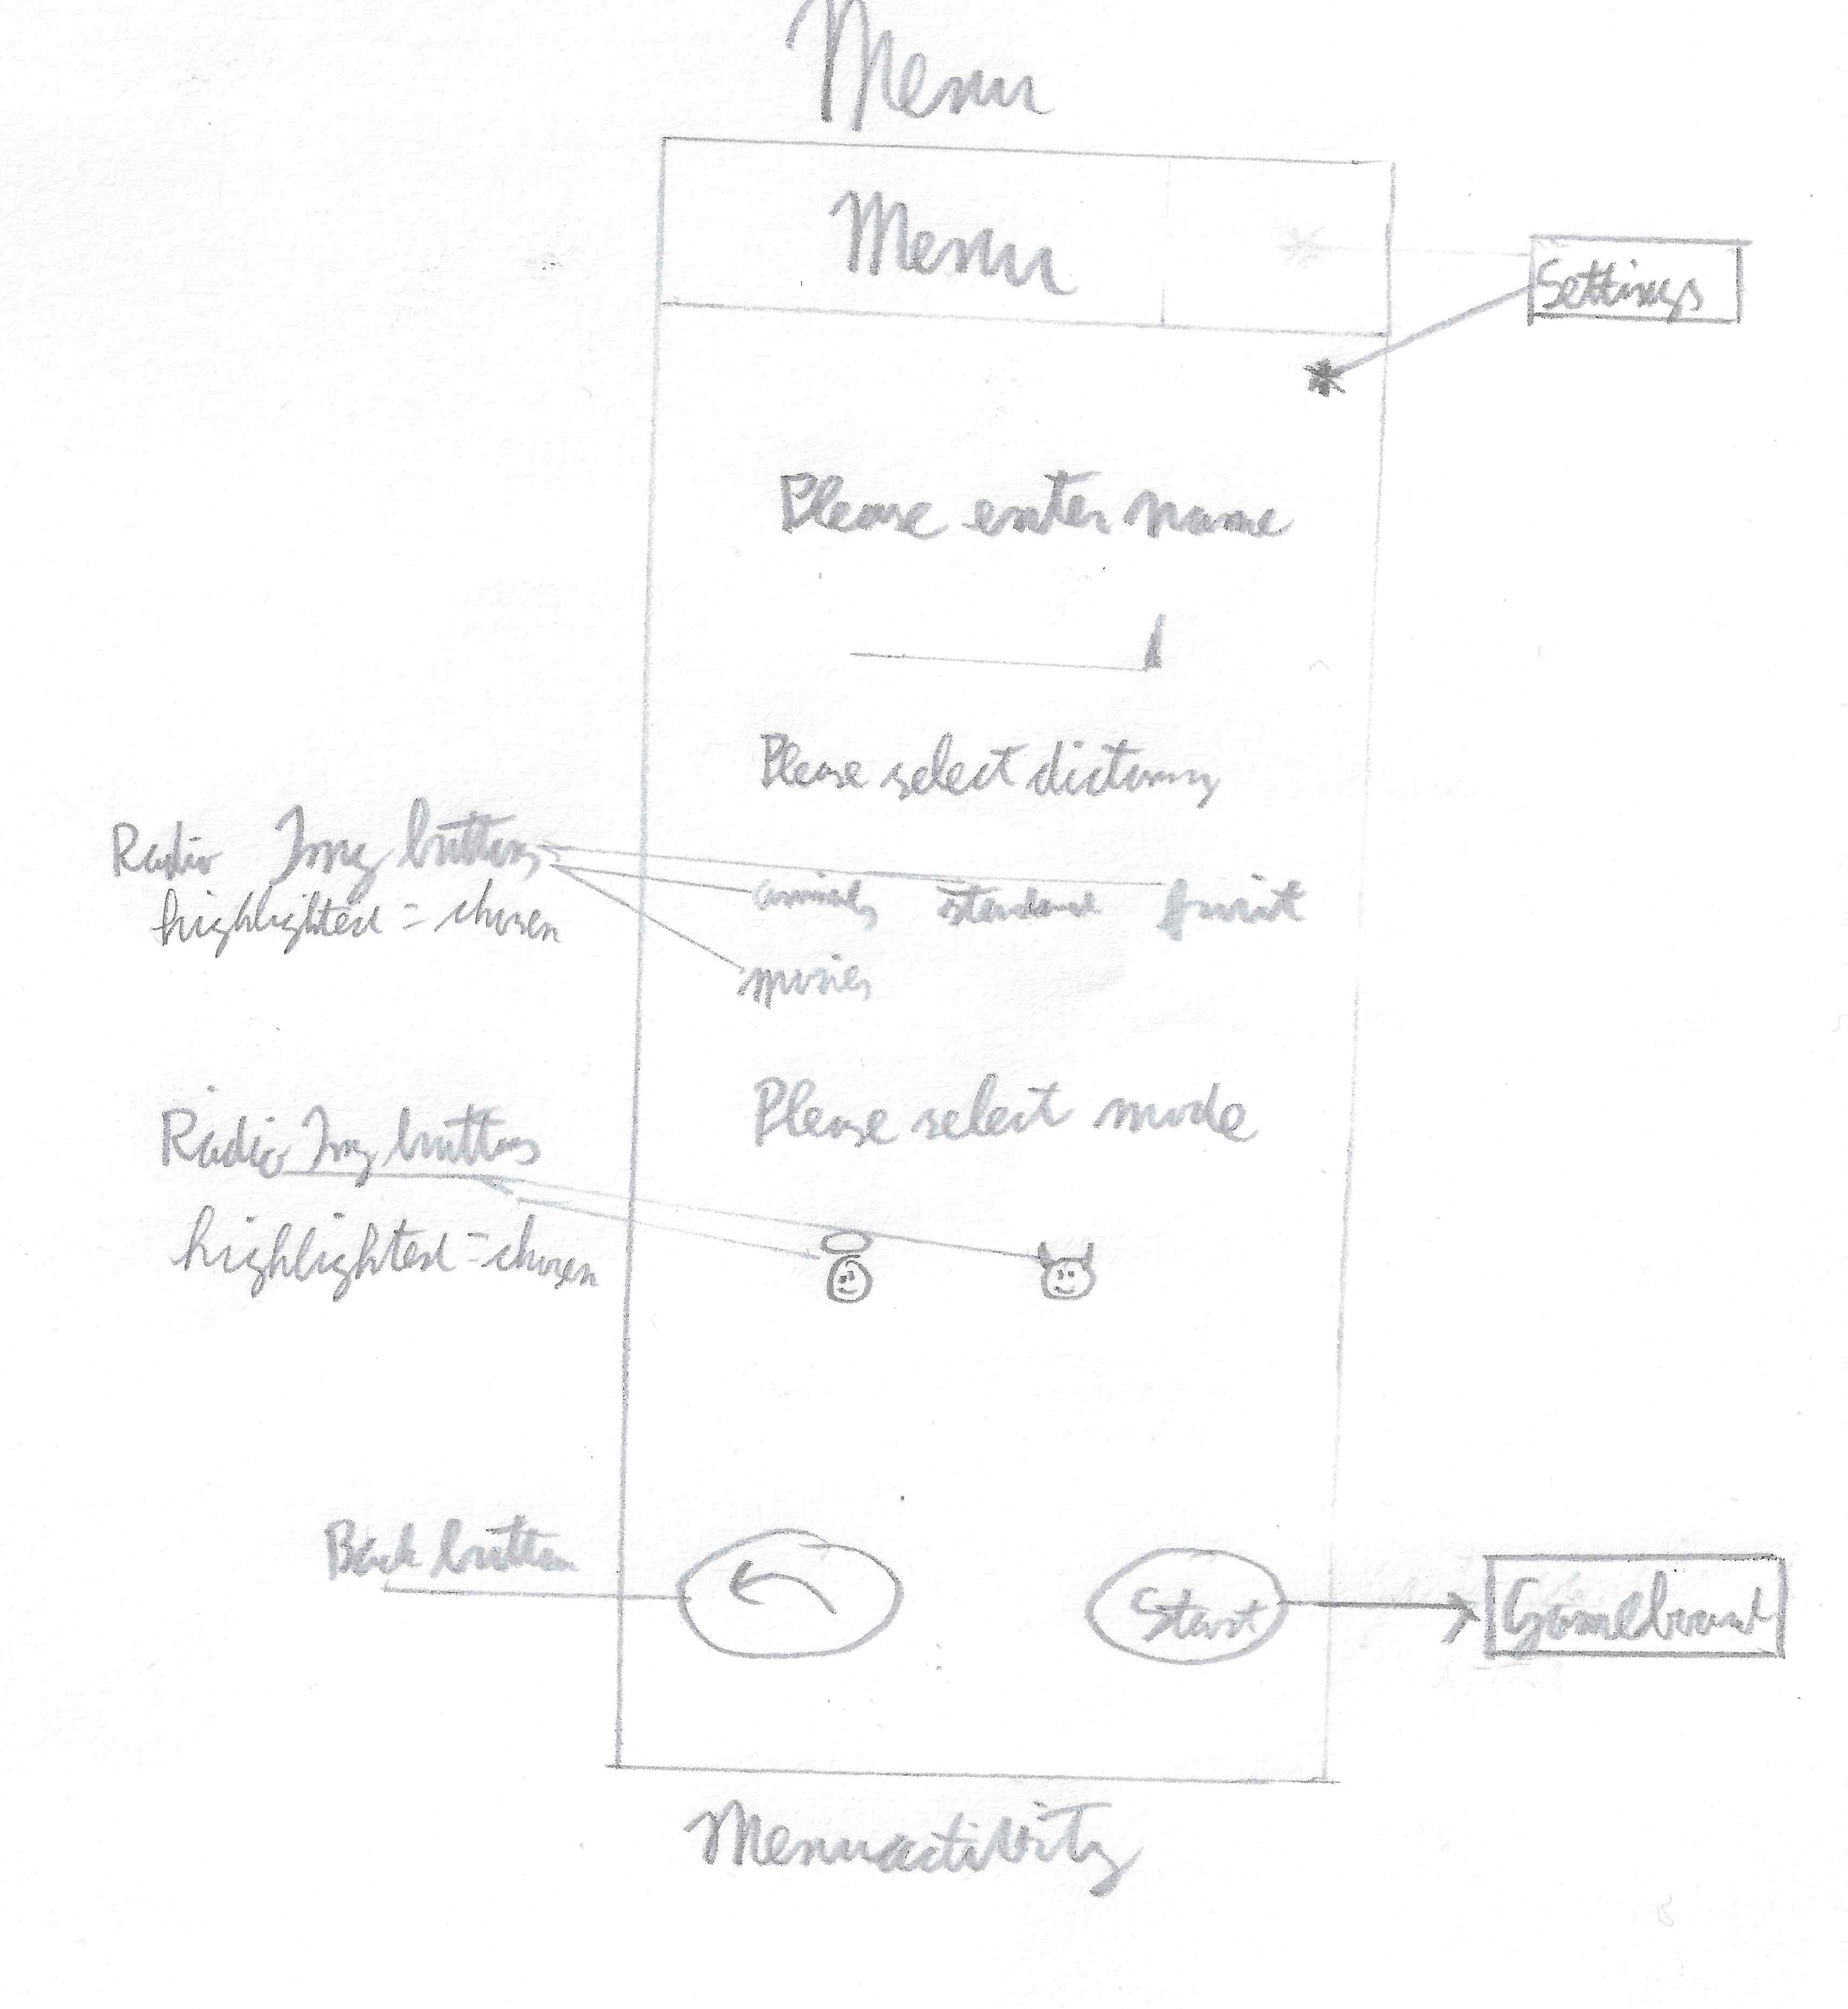 Menu
Menu
Settings
Please enter name
Please select dictionary
Radio Img buttons
highlighted = chosen
animals standard fruit
movies
Please select mode
Radio Img buttons
highlighted = chosen
Back button
Start
Gameboard
Menuactivity